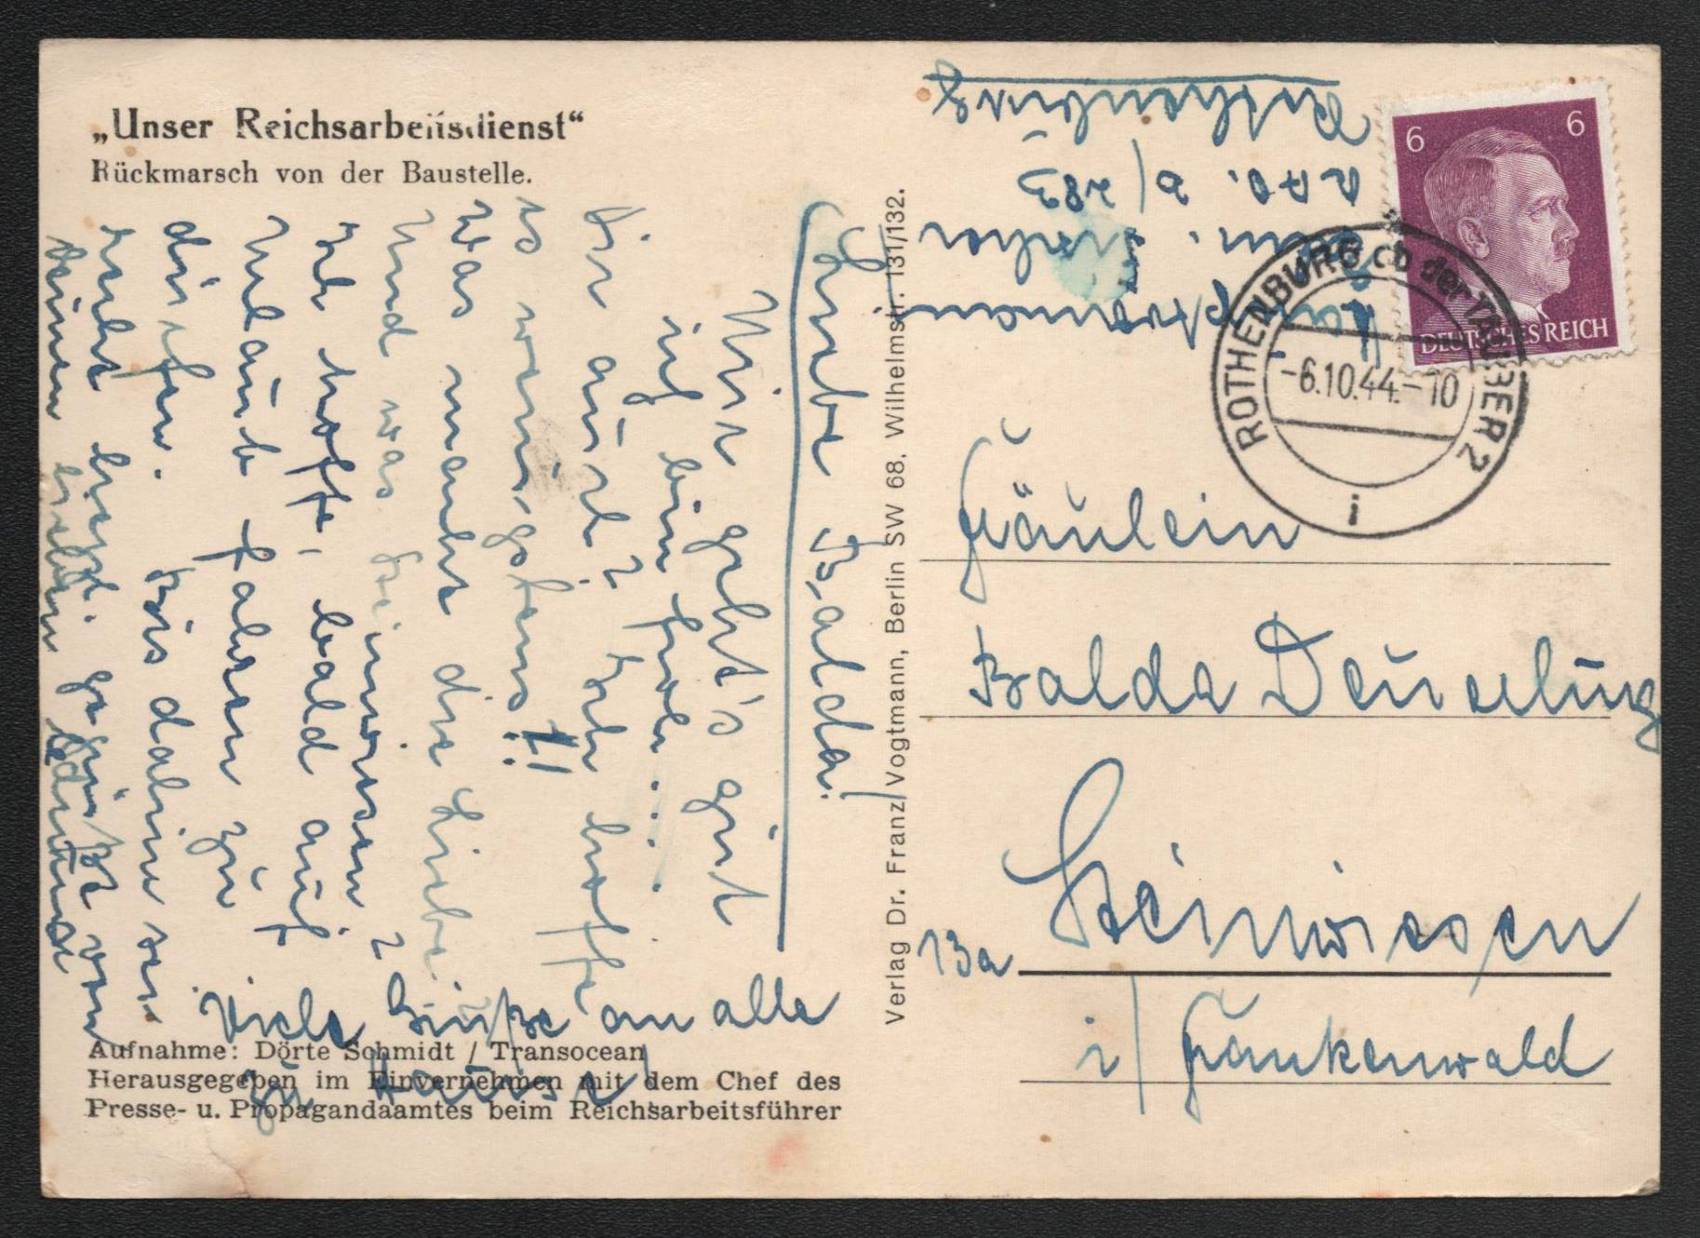 „Unser Reichsarbeitsdienst“
Rückmarsch von der Baustelle.
Liebe Balda!
Mir geht's gut
ich bin froh...
Dir auch? Ich hoffe
es wenigstens!!
Was macht die Liebe
Und was Steinwiesen?
Ich hoffe, bald auf
Urlaub fahren zu
dürfen. Bis dahin sei
recht herzl. gegrüßt von
Deinem lieben
Viele Grüße an alle
zu Hause!
Aufnahme: Dörte Schmidt / Transocean
Herausgegeben im Einvernehmen mit dem Chef des
Presse- u. Propagandaamtes beim Reichsarbeitsführer
Verlag Dr. Franz Vogtmann, Berlin SW 68, Wilhelmstr. 131/132.
RAD. 6/283
Rothenburg
6 6
DEUTSCHES REICH
ROTHENBURG ob der TAUBER 2
-6.10.44.-10
i
Fräulein
Balda Deuerling
13a Steinwiesen
i/Frankenwald